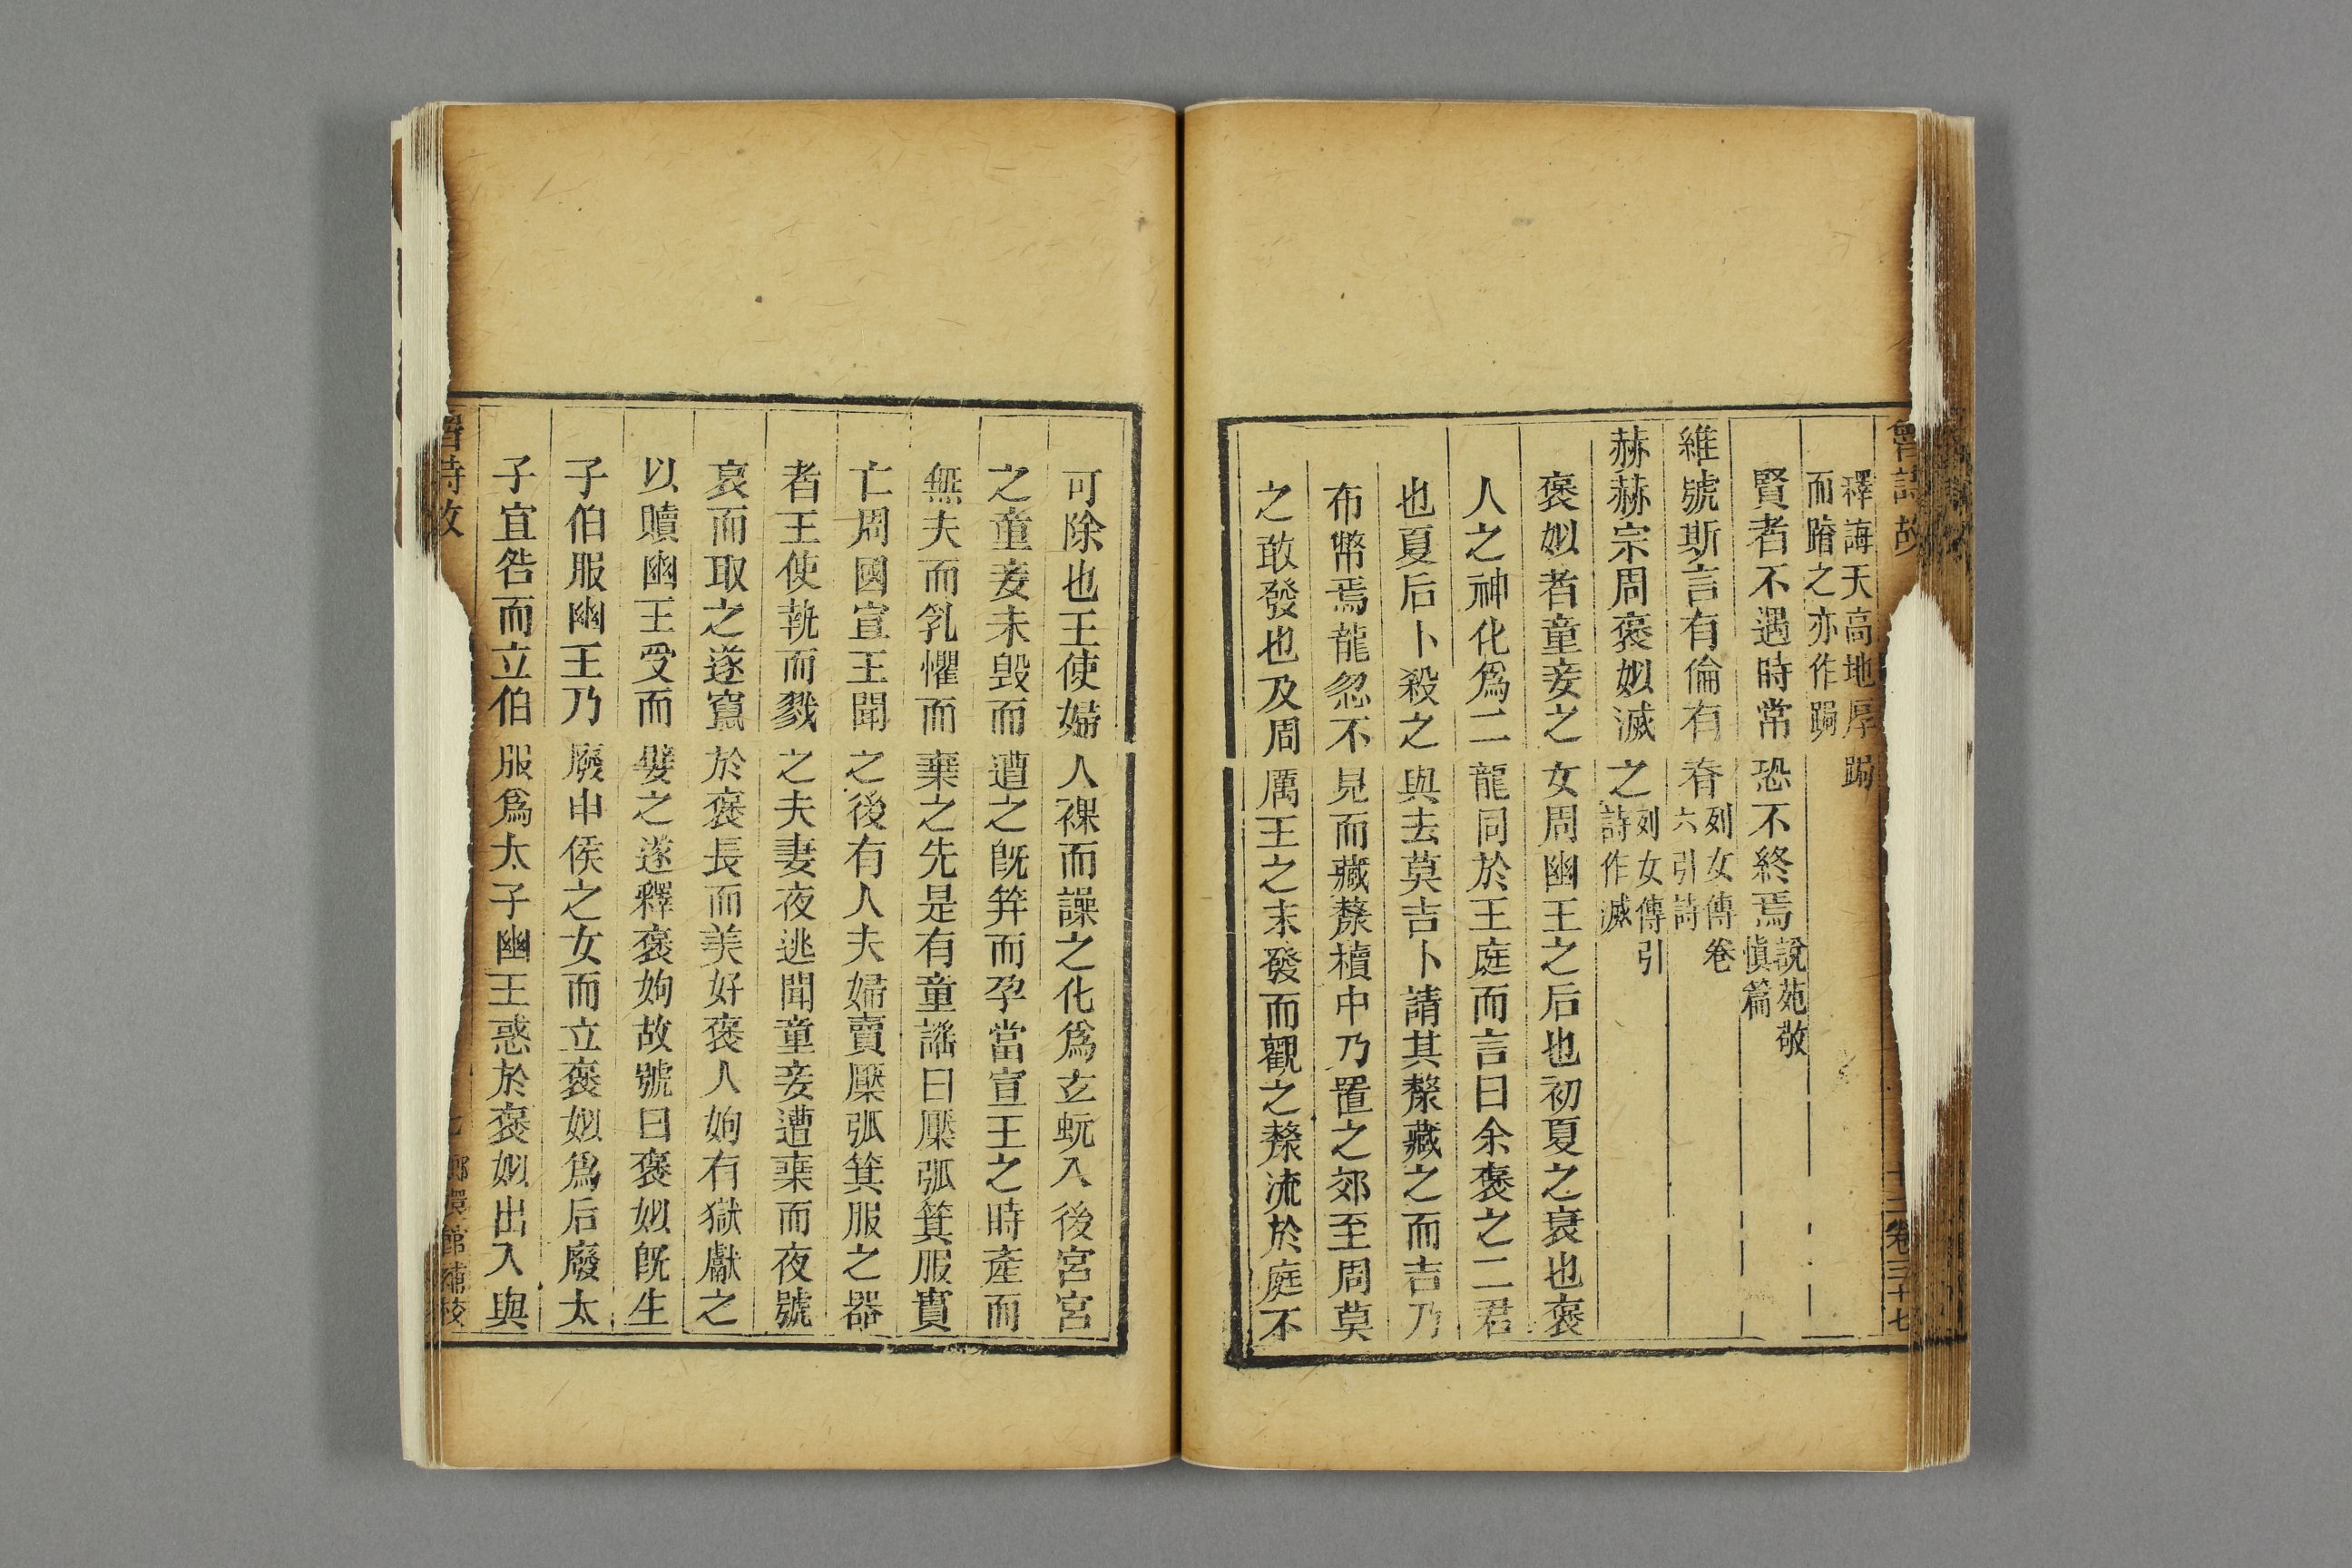 魯詩故
十二卷三十七
釋誨天高地厚跼
而蹐之亦作跼
賢者不遇時常恐不終焉說苑敬
愼篇
維號斯言有倫有脊列女傳卷
六引詩
赫赫宗周褒姒滅之列女傳引
詩作滅
褒姒者童妾之女周幽王之后也初夏之衰也褒
人之神化爲二龍同於王庭而言曰余褒之二君
也夏后卜殺之與去莫吉卜請其漦藏之而吉乃
布幣焉龍忽不見而藏漦櫝中乃置之郊至周莫
之敢發也及周厲王之末發而觀之漦流於庭不
可除也王使婦人裸而譟之化爲玄蚖入後宮宮
之童妾未毀而遭之旣笄而孕當宣王之時產而
無夫而乳懼而棄之先是有童謠曰檿弧箕服實
亡周國宣王聞之後有人夫婦賣檿弧箕服之器
者王使執而戮之夫妻夜逃聞童妾遭棄而夜號
哀而取之遂竄於褒長而美好褒人姁有獄獻之
以贖幽王受而嬖之遂釋褒姁故號曰褒姒旣生
子伯服幽王乃廢申侯之女而立褒姒爲后廢太
子宜咎而立伯服爲太子幽王惑於褒姒出入與
詩故
嬛館補校